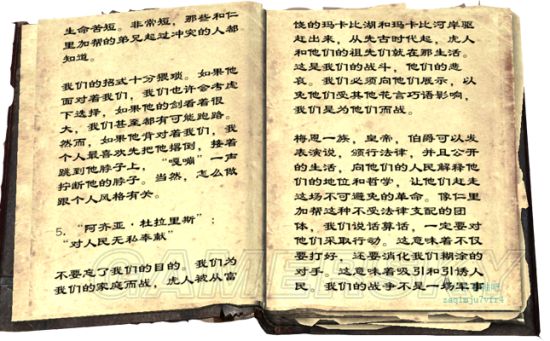 生命苦短。非常短，那些和仁
里加帮的弟兄起过冲突的人都
知道。
我们的招式十分猥琐。如果他
面对着我们，我们也许会考虑
下选择，如果他的剑看着很
大，我们甚至都有可能跑路。
然而，如果他背对着我们，我
个人最喜欢先把他撂倒，接着
跳到他脖子上，“嘎嘣”一声
拧断他的脖子。当然，怎么做
跟个人风格有关。
5. “阿齐亚·杜拉里斯”；
“对人民无私奉献”
不要忘了我们的目的。我们为
我们的家庭而战，虎人被从富
饶的玛卡比湖和玛卡比河岸驱
赶出来，从先古时代起，虎人
和他们的祖先们就在那生活。
这是我们的战斗，他们的悲
哀。我们必须向他们展示，以
免他们受其他花言巧语影响，
我们是为他们而战。
梅恩一族，皇帝，伯爵可以发
表演说，颁行法律，并且公开
的生活，向他们的人民解释他
们的地位和哲学，让他们赶走
这场不可避免的革命。像仁里
加帮这种不受法律支配的团
体，我们说话算话，一定要对
他们采取行动。这意味着不仅
要打好，还要消化我们糊涂的
对手。这意味着吸引和引诱人
民。我们的战争不是一场军事
GAMERSKY
zaqimju7vfr4